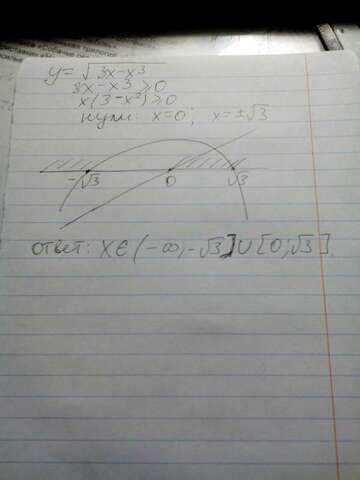 y = √3x-x³
3x-x³ ≥ 0
x(3-x²) ≥ 0
нули: x=0; x=±√3
-√3 0 √3
ответ: X ∈ (-∞; -√3] ∪ [0; √3]